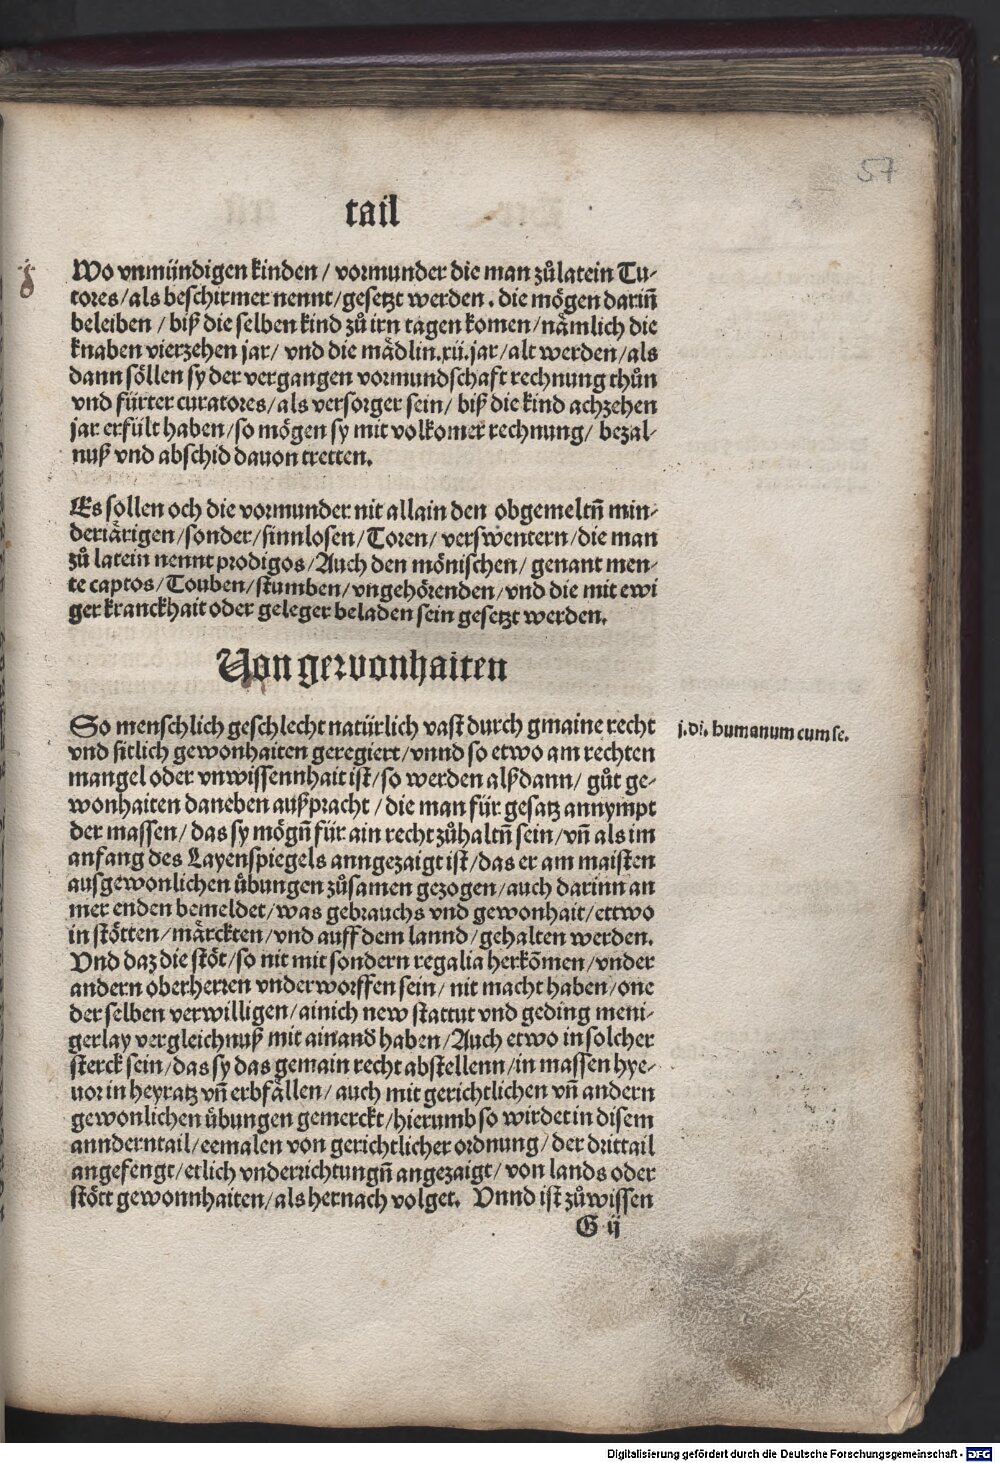 57
tail
Wo vnmündigen kinden / vormunder die man zůlatein Tu-
tores / als beschirmer nennt / gesetzt werden. die mögen dariñ
beleiben / biß die selben kind zů irn tagen komen / nämlich die
knaben vierzehen jar / vnd die mädlin .xii. jar / alt werden / als
dann söllen sy der vergangen vormundschaft rechnung thůn
vnd fürter curatores / als versorger sein / biß die kind achzehen
jar erfült haben / so mögen sy mit volkomer rechnung / bezal-
nuß vnd abschid dauon tretten.
Es sollen och die vormunder nit allain den obgemeltñ min-
deriärigen / sonder / sinnlosen / Toren / verswentern / die man
zů latein nennt prodigos / Auch den mönischen / genant men-
te captos / Touben / stumben / vngehörenden / vnd die mit ewi
ger kranckhait oder geleger beladen sein gesetzt werden.
Von gewonhaiten
So menschlich geschlecht natürlich vast durch gmaine recht
j. di. humanum cum se.
vnd sitlich gewonhaiten geregiert / vnnd so etwo am rechten
mangel oder vnwissennhait ist / so werden alßdann / gůt ge-
wonhaiten daneben außpracht / die man für gesatz annympt
der massen / das sy mögñ für ain recht zůhaltñ sein / vñ als im
anfang des Layenspiegels anngezaigt ist / das er am maisten
aus gewonlichen übungen zůsamen gezogen / auch darinn an
mer enden bemeldet / was gebrauchs vnd gewonhait / ettwo
in stötten / märckten / vnd auff dem lannd / gehalten werden.
Vnd daz die stöt / so nit mit sondern regalia herkõmen / vnder
andern oberherren vnderworffen sein / nit macht haben / one
der selben verwilligen / ainich new stattut vnd geding meni-
gerlay vergleichnuß mit ainand haben / Auch etwo in solcher
sterck sein / das sy das gemain recht abstellenn / in massen hye-
uor in heyratz vñ erbfällen / auch mit gerichtlichen vñ andern
gewonlichen übungen gemerckt / hierumb so wirdet in disem
annderntail / eemalen von gerichtlicher ordnung / der drittail
angefengt / etlich vnderrichtungñ angezaigt / von lands oder
stött gewonnhaiten / als hernach volget. Vnnd ist zůwissen
G ij
Digitalisierung gefördert durch die Deutsche Forschungsgemeinschaft - DFG